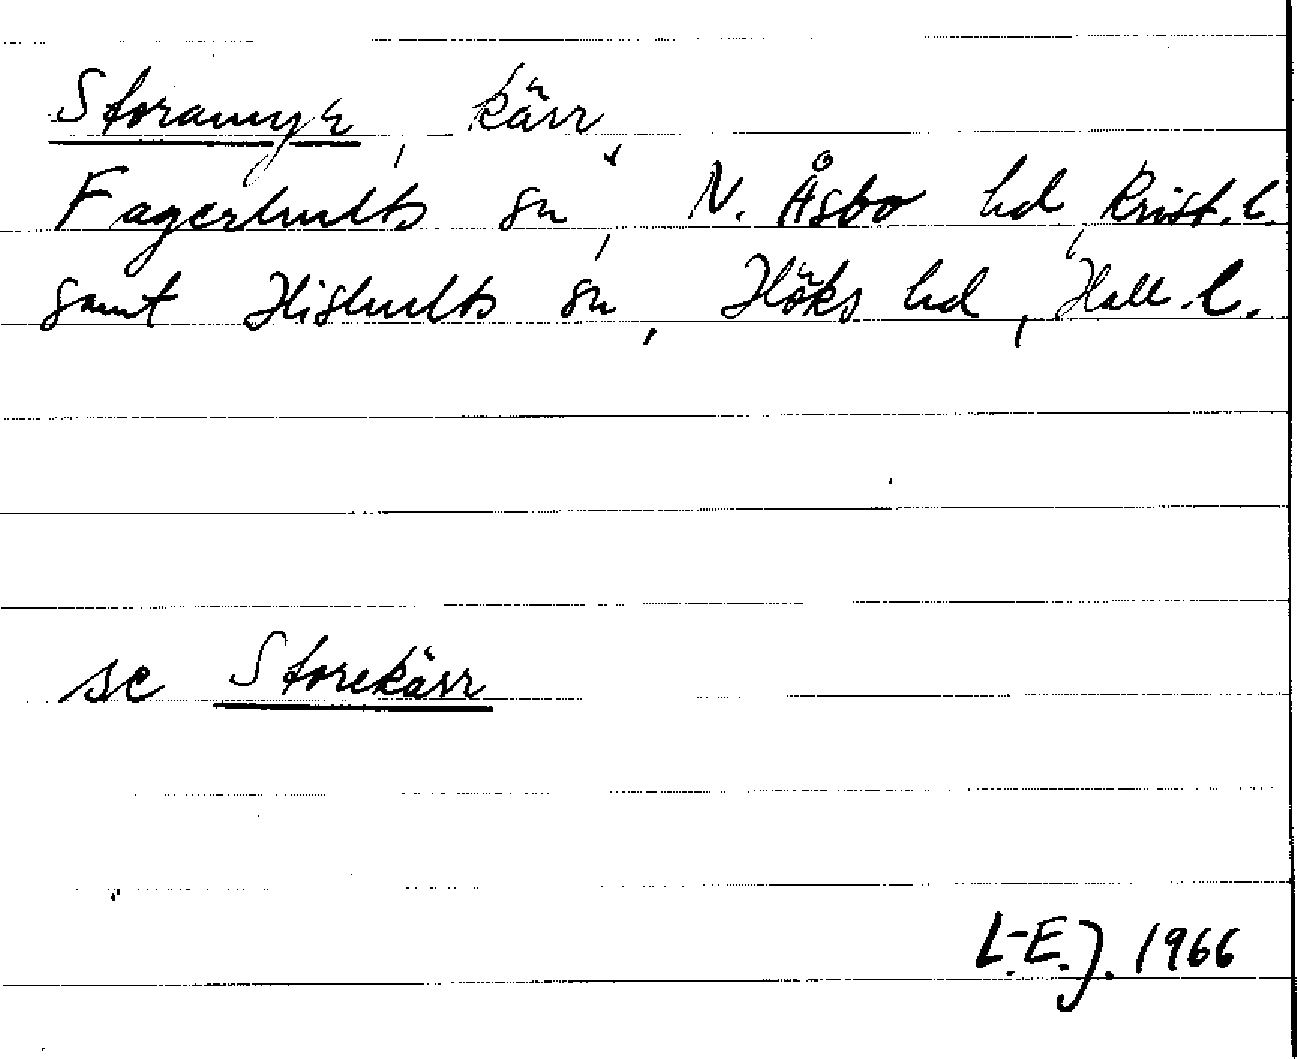 Storamyr, kärr,
Fagerhults sn, N. Åsbo hd, Krist. l.
samt Hishults sn, Höks hd, Hall. l.
se Storekärr
L.-E. J. 1966